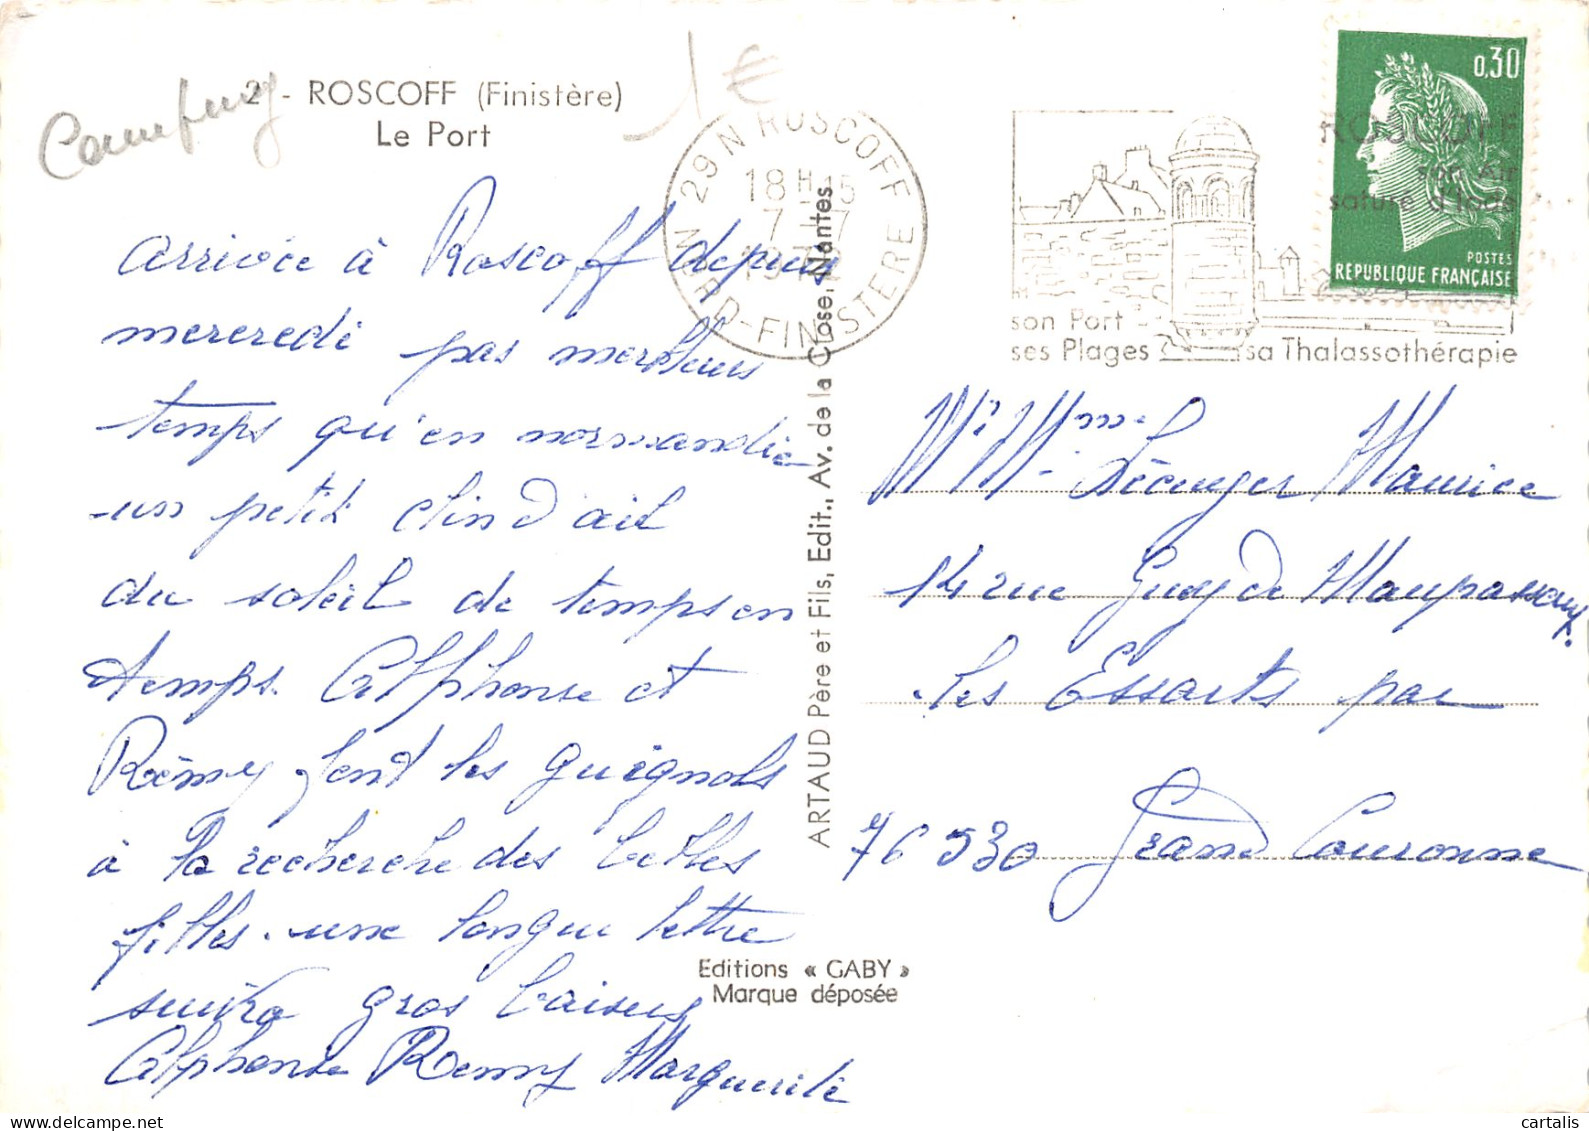 Camping
2 - ROSCOFF (Finistère)
Le Port
1 €
29 N ROSCOFF
18 H 15
7 - 7
NORD-FINISTERE
ROSCOFF
son Air
saturé d'Iode
son Port
ses Plages
sa Thalassothérapie
0,30
POSTES
REPUBLIQUE FRANÇAISE
arrivée à Roscoff depuis
mercredi pas meilleurs
temps qu'en normandie
un petit clin d'œil
du soleil de temps en
temps. Alphonse et
Rémy font les guignols
à la recherche des belles
filles. une longue lettre
suivra gros baisers
Alphonse Remy Marguerite
ARTAUD Père et Fils, Edit., Av. de la Close, Nantes
Editions « GABY »
Marque déposée
Mr Mme Maurice
14 rue Guy de Maupassant
les Essarts par
76 530 Grand Couronne
cartalis.com